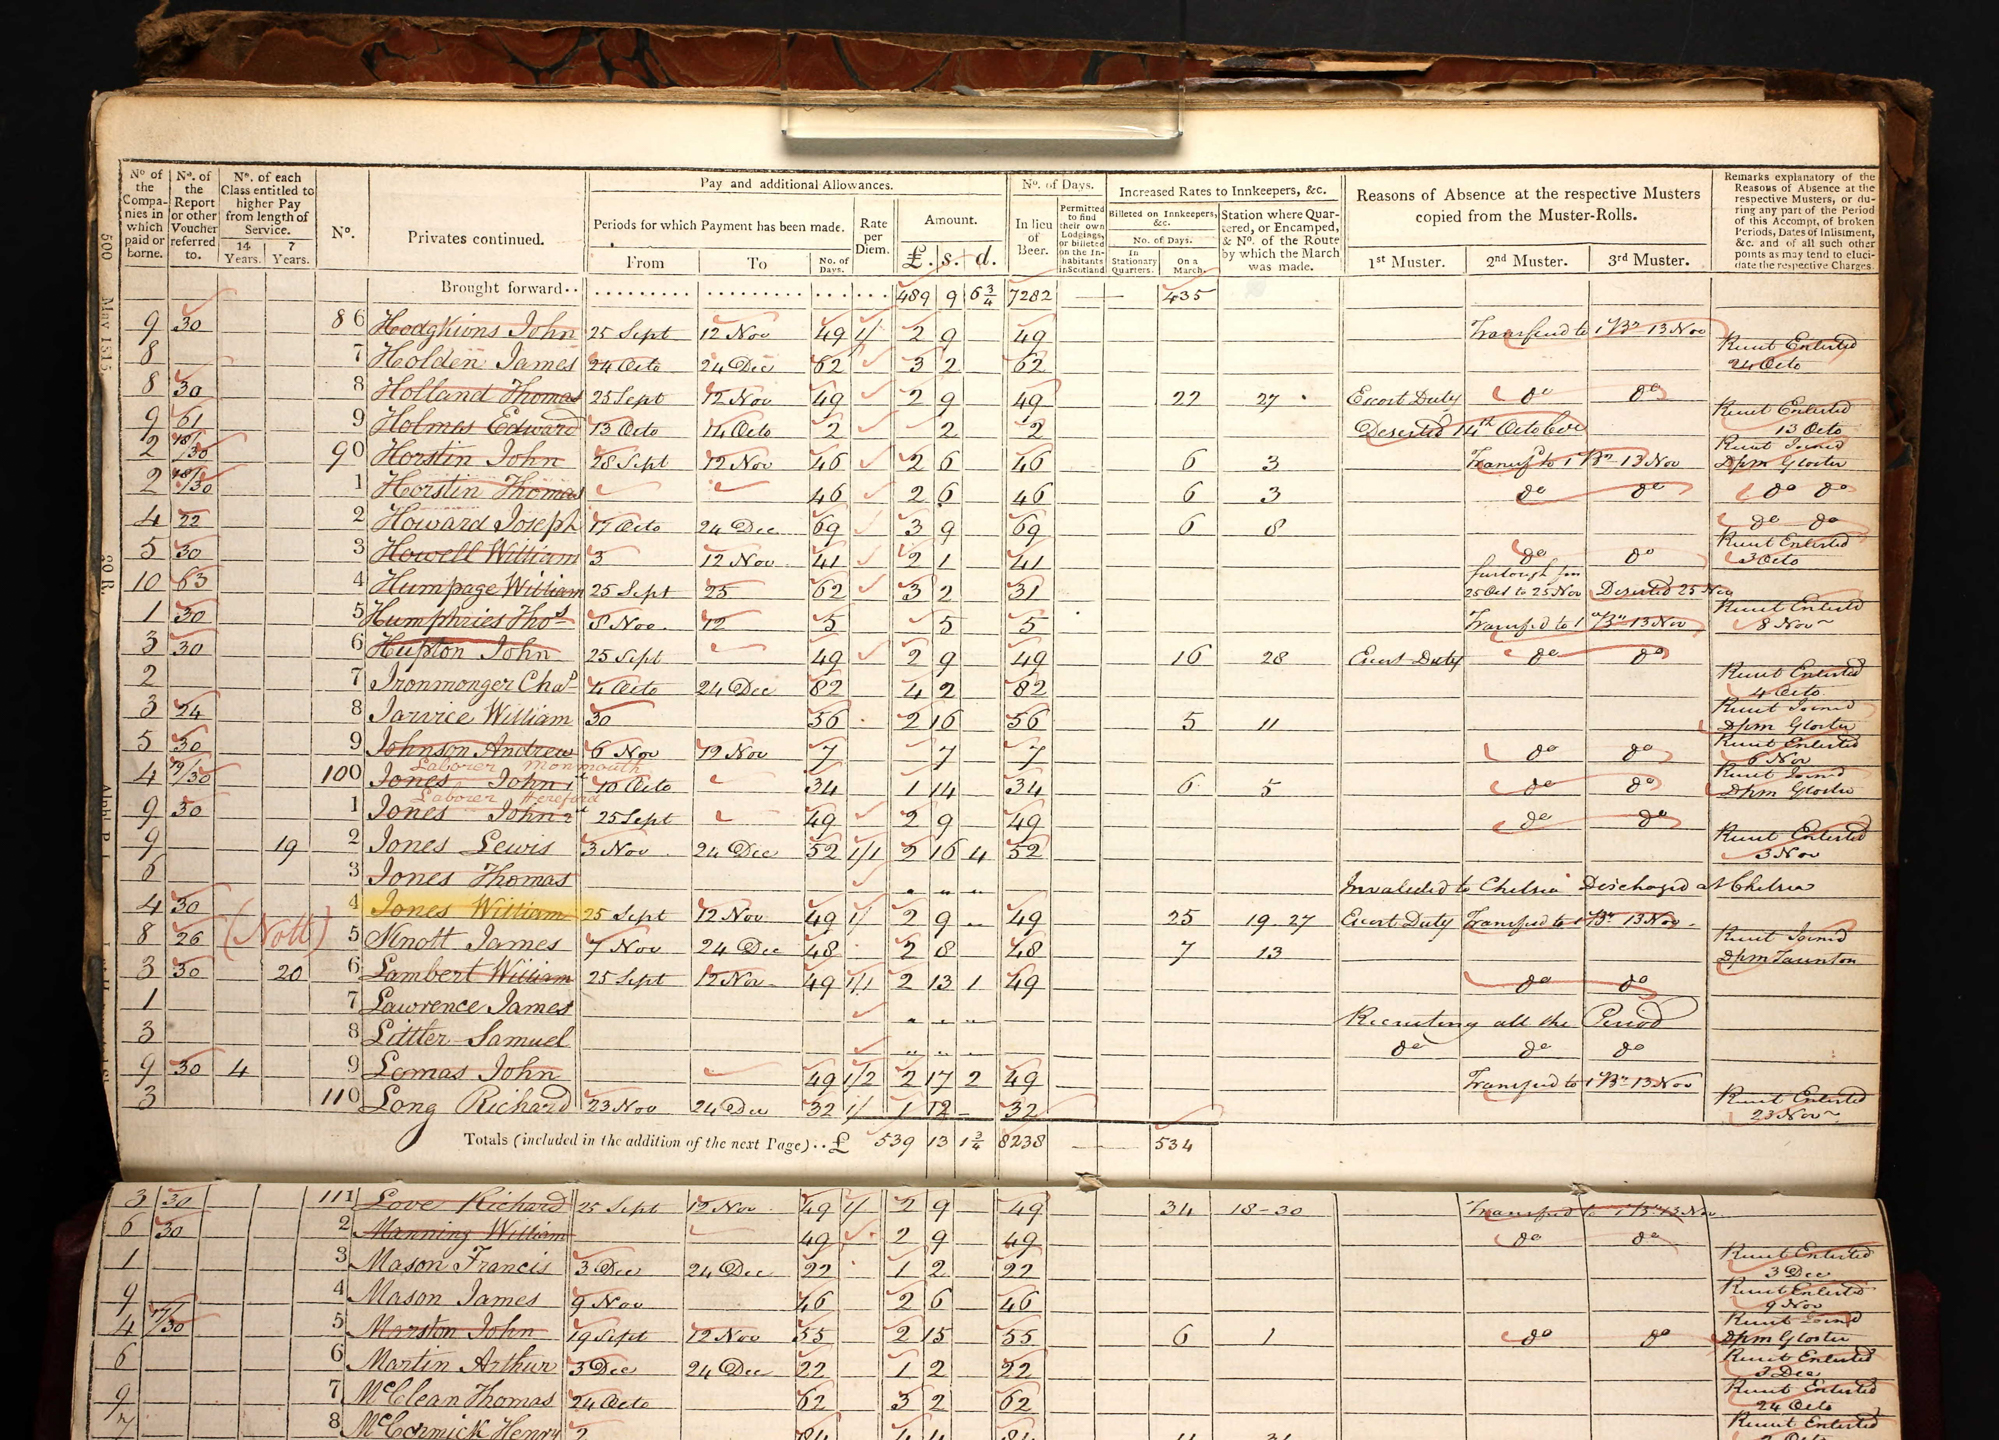 No. of the Companies in which paid or borne.
No. of the Report or other Voucher referred to.
No. of each Class entitled to higher Pay from length of Service.
14 Years. 7 Years.
No.
Privates continued.
Pay and additional Allowances.
Periods for which Payment has been made.
From To No. of Days.
Rate per Diem.
Amount.
£. s. d.
No. of Days.
In lieu of Beer.
Permitted to find their own Lodgings, or billeted on the Inhabitants in Scotland
Increased Rates to Innkeepers, &c.
Billeted on Innkeepers, &c.
No. of Days.
In Stationary Quarters. On a March.
Station where Quartered, or Encamped, & No. of the Route by which the March was made.
Reasons of Absence at the respective Musters copied from the Muster-Rolls.
1st Muster. 2nd Muster. 3rd Muster.
Remarks explanatory of the Reasons of Absence at the respective Musters, or during any part of the Period of this Accompt, of broken Periods, Dates of Inlistment, &c. and of all such other points as may tend to elucidate the respective Charges.
Brought forward 489 9 6¾ 7282 435
9 30 86 Hodgkions John 25 Sept 12 Nov 49 1/ 2 9 49 Transferd to 1 Bn 13 Nov
8 7 Holden James 24 Octo 24 Dec 62 3 2 62 Rnut Enlisted 24 Octo
8 30 8 Holland Thomas 25 Sept 12 Nov 49 2 9 49 22 27 Escort Duty do do
9 61 9 Holmes Edward 13 Octo 14 Octo 2 2 2 Deserted 14th October Rnut Enlisted 13 Octo
2 /30 90 Horstin John 28 Sept 12 Nov 46 2 6 46 6 3 Transfd to 1 Bn 13 Nov Rnut Joined Dpm Gloster
2 /30 1 Horstin Thomas 46 2 6 46 6 3 do do do do
4 22 2 Howard Joseph 17 Octo 24 Dec 69 3 9 69 6 8 do do
5 30 3 Howell William 3 12 Nov 41 2 1 41 do do Rnut Enlisted 3 Octo
10 63 4 Humpage William 25 Sept 25 62 3 2 31 furlough fm 25 Oct to 25 Nov Deserted 25 Nov
1 30 5 Humphries Thos 8 Nov 12 5 5 5 Transfd to 1 Bn 13 Nov Rnut Enlisted 8 Novr
3 30 6 Hupton John 25 Sept 49 2 9 49 16 28 Escort Duty do do
2 7 Ironmonger Chas 4 Octo 24 Dec 82 4 2 82 Rnut Enlisted 4 Octo
3 24 8 Jarvice William 30 56 2 16 56 5 11 Rnut Joined Dpm Gloster
5 30 9 Johnson Andrew 6 Nov 12 Nov 7 7 7 do do Rnut Enlisted 6 Nov
Laborer Monmouth
4 19/30 100 Jones John 1st 10 Octo 34 1 14 34 6 5 do do Rnut Joined Dpm Gloster
Laborer Hereford
9 30 1 Jones John 2d 25 Sept 49 2 9 49 do do
9 19 2 Jones Lewis 3 Nov 24 Dec 52 1/1 2 16 4 52 Rnut Enlisted 3 Nov
6 3 Jones Thomas Invalided to Chelsea Discharged at Chelsea
4 30 4 Jones William 25 Sept 12 Nov 49 1/ 2 9 49 25 19.27 Escort Duty Transfd to 1 Bn 13 Nov
8 26 (Nott) 5 Knott James 7 Nov 24 Dec 48 2 8 48 7 13 Rnut Joined Dpm Taunton
3 30 20 6 Lambert William 25 Sept 12 Nov 49 1/1 2 13 1 49 do do
1 7 Lawrence James Recruiting all the Period
3 8 Littler Samuel do do do
9 30 4 9 Lomas John 49 1/2 2 17 2 49 Transfd to 1 Bn 13 Nov
3 110 Long Richard 23 Nov 24 Dec 32 1/ 1 12 32 Rnut Enlisted 23 Novr
Totals (included in the addition of the next Page) £ 539 13 1¾ 8238 534
3 30 111 Love Richard 25 Sept 12 Nov 49 1/ 2 9 49 34 18-30 Transfd to 1 Bn 13 Nov
6 30 2 Manning William 49 2 9 49 do do
1 3 Mason Francis 3 Dec 24 Dec 22 1 2 22 Rnut Enlisted 3 Dec
9 4 Mason James 9 Nov 46 2 6 46 Rnut Enlisted 9 Nov
4 17/30 5 Marston John 19 Sept 12 Nov 55 2 15 55 6 1 do do Rnut Joined Dpm Gloster
6 6 Martin Arthur 3 Dec 24 Dec 22 1 2 22 Rnut Enlisted 3 Dec
9 7 McClean Thomas 24 Octo 62 3 2 62 Rnut Enlisted 24 Octo
7 8 McCormick Henry 2 84 4 4 84 Rnut Enlisted